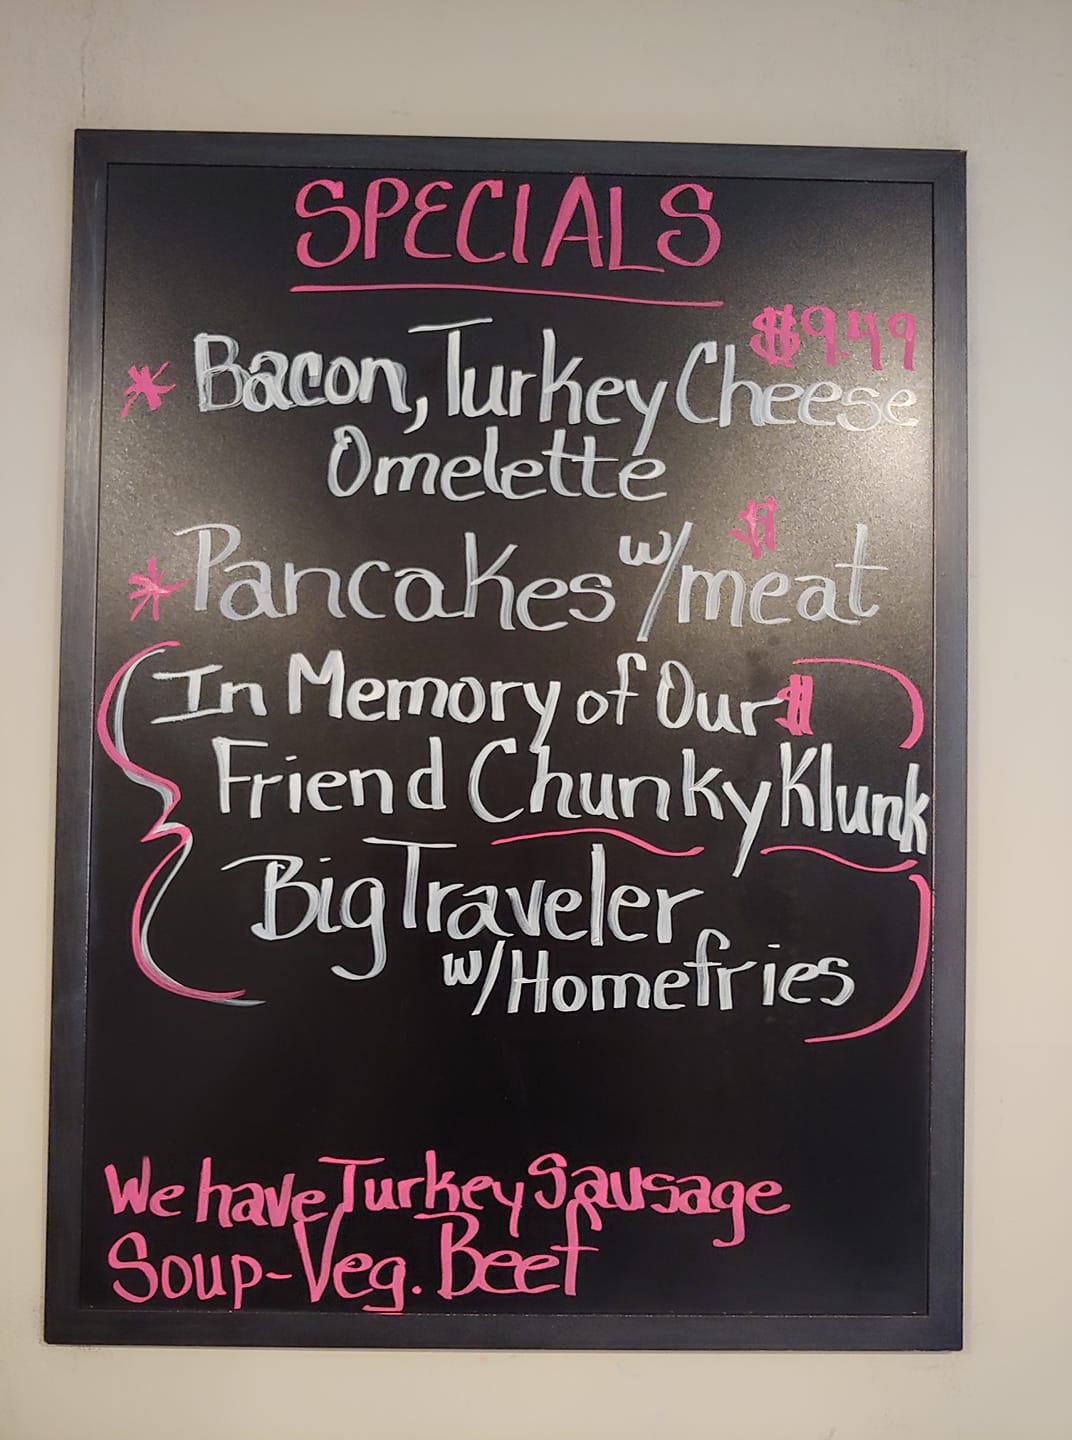 SPECIALS
$9.49
* Bacon, Turkey Cheese
Omelette
$
* Pancakes w/meat
In Memory of Our $
Friend Chunky Klunk
Big Traveler
w/Homefries
We have Turkey Sausage
Soup-Veg. Beef